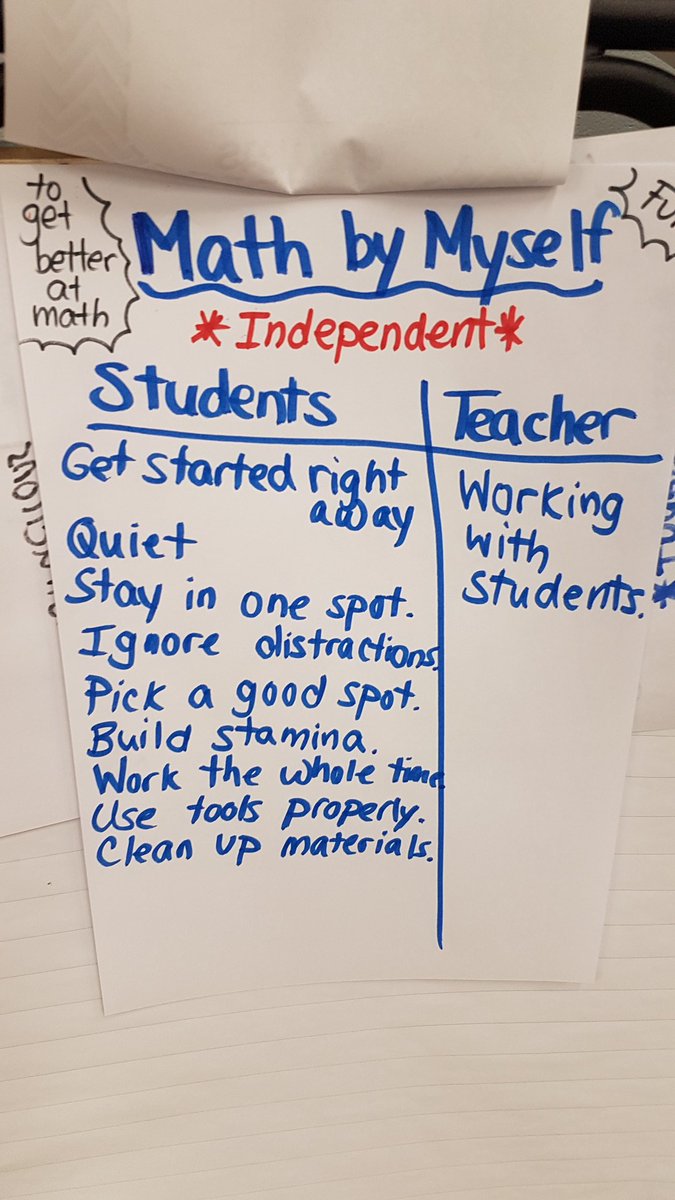 to
get
better
at
math
Math by Myself
*Independent*
Students
Teacher
Get started right
away
Quiet
Stay in one spot.
Ignore distractions.
Pick a good spot.
Build stamina.
Work the whole time.
Use tools properly.
Clean up materials.
Working
with
students.